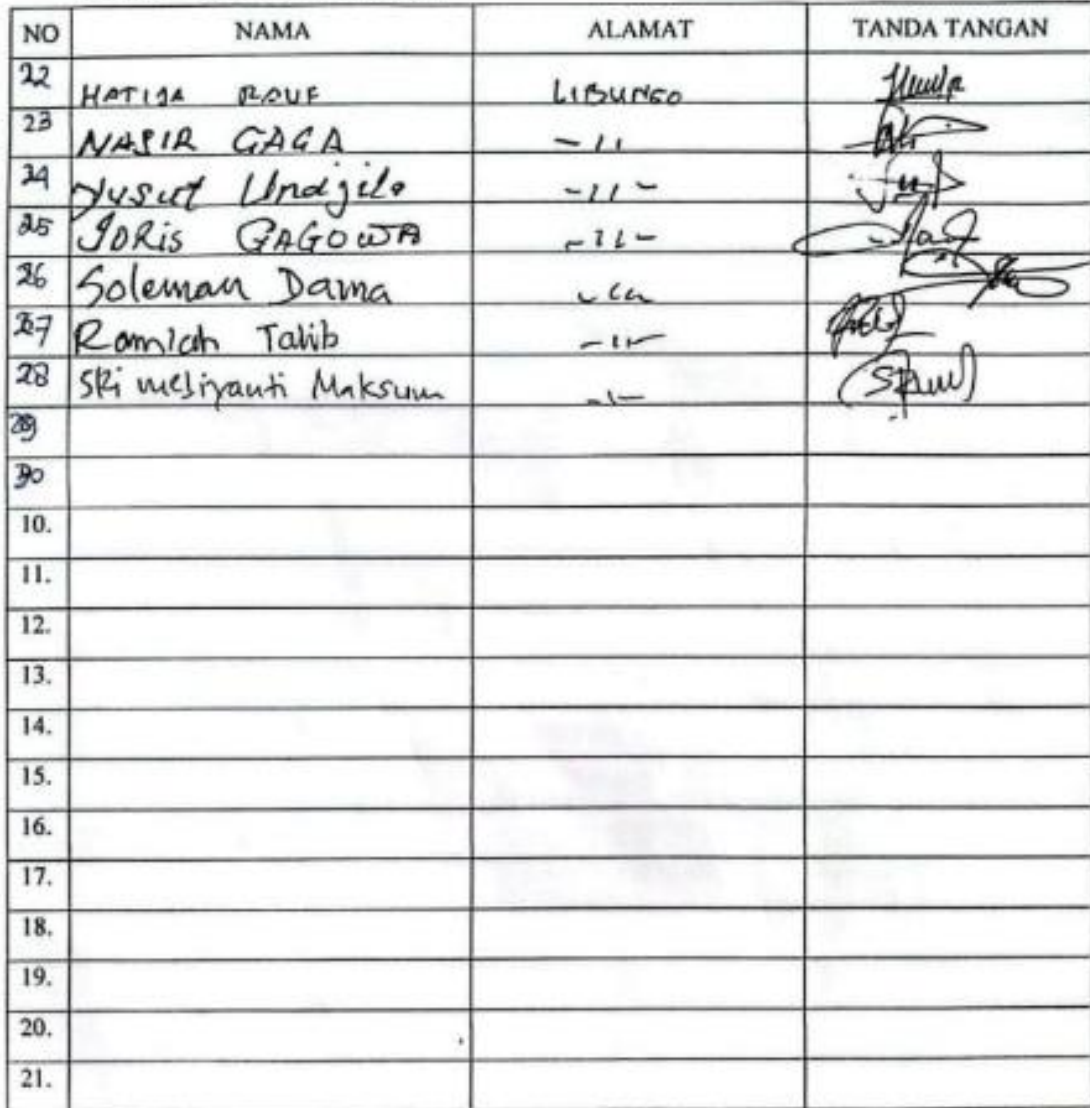 NO NAMA ALAMAT TANDA TANGAN
22 HATIJA RAUF LIBUNGO
23 NASIR GAGA -11
24 Yusuf Undjila -11-
25 IDRIS GAGOWA -11-
26 Soleman Dama
27 Ramlah Talib -11-
28 SRi melsiyanti Maksum -1-
29
30
10.
11.
12.
13.
14.
15.
16.
17.
18.
19.
20.
21.